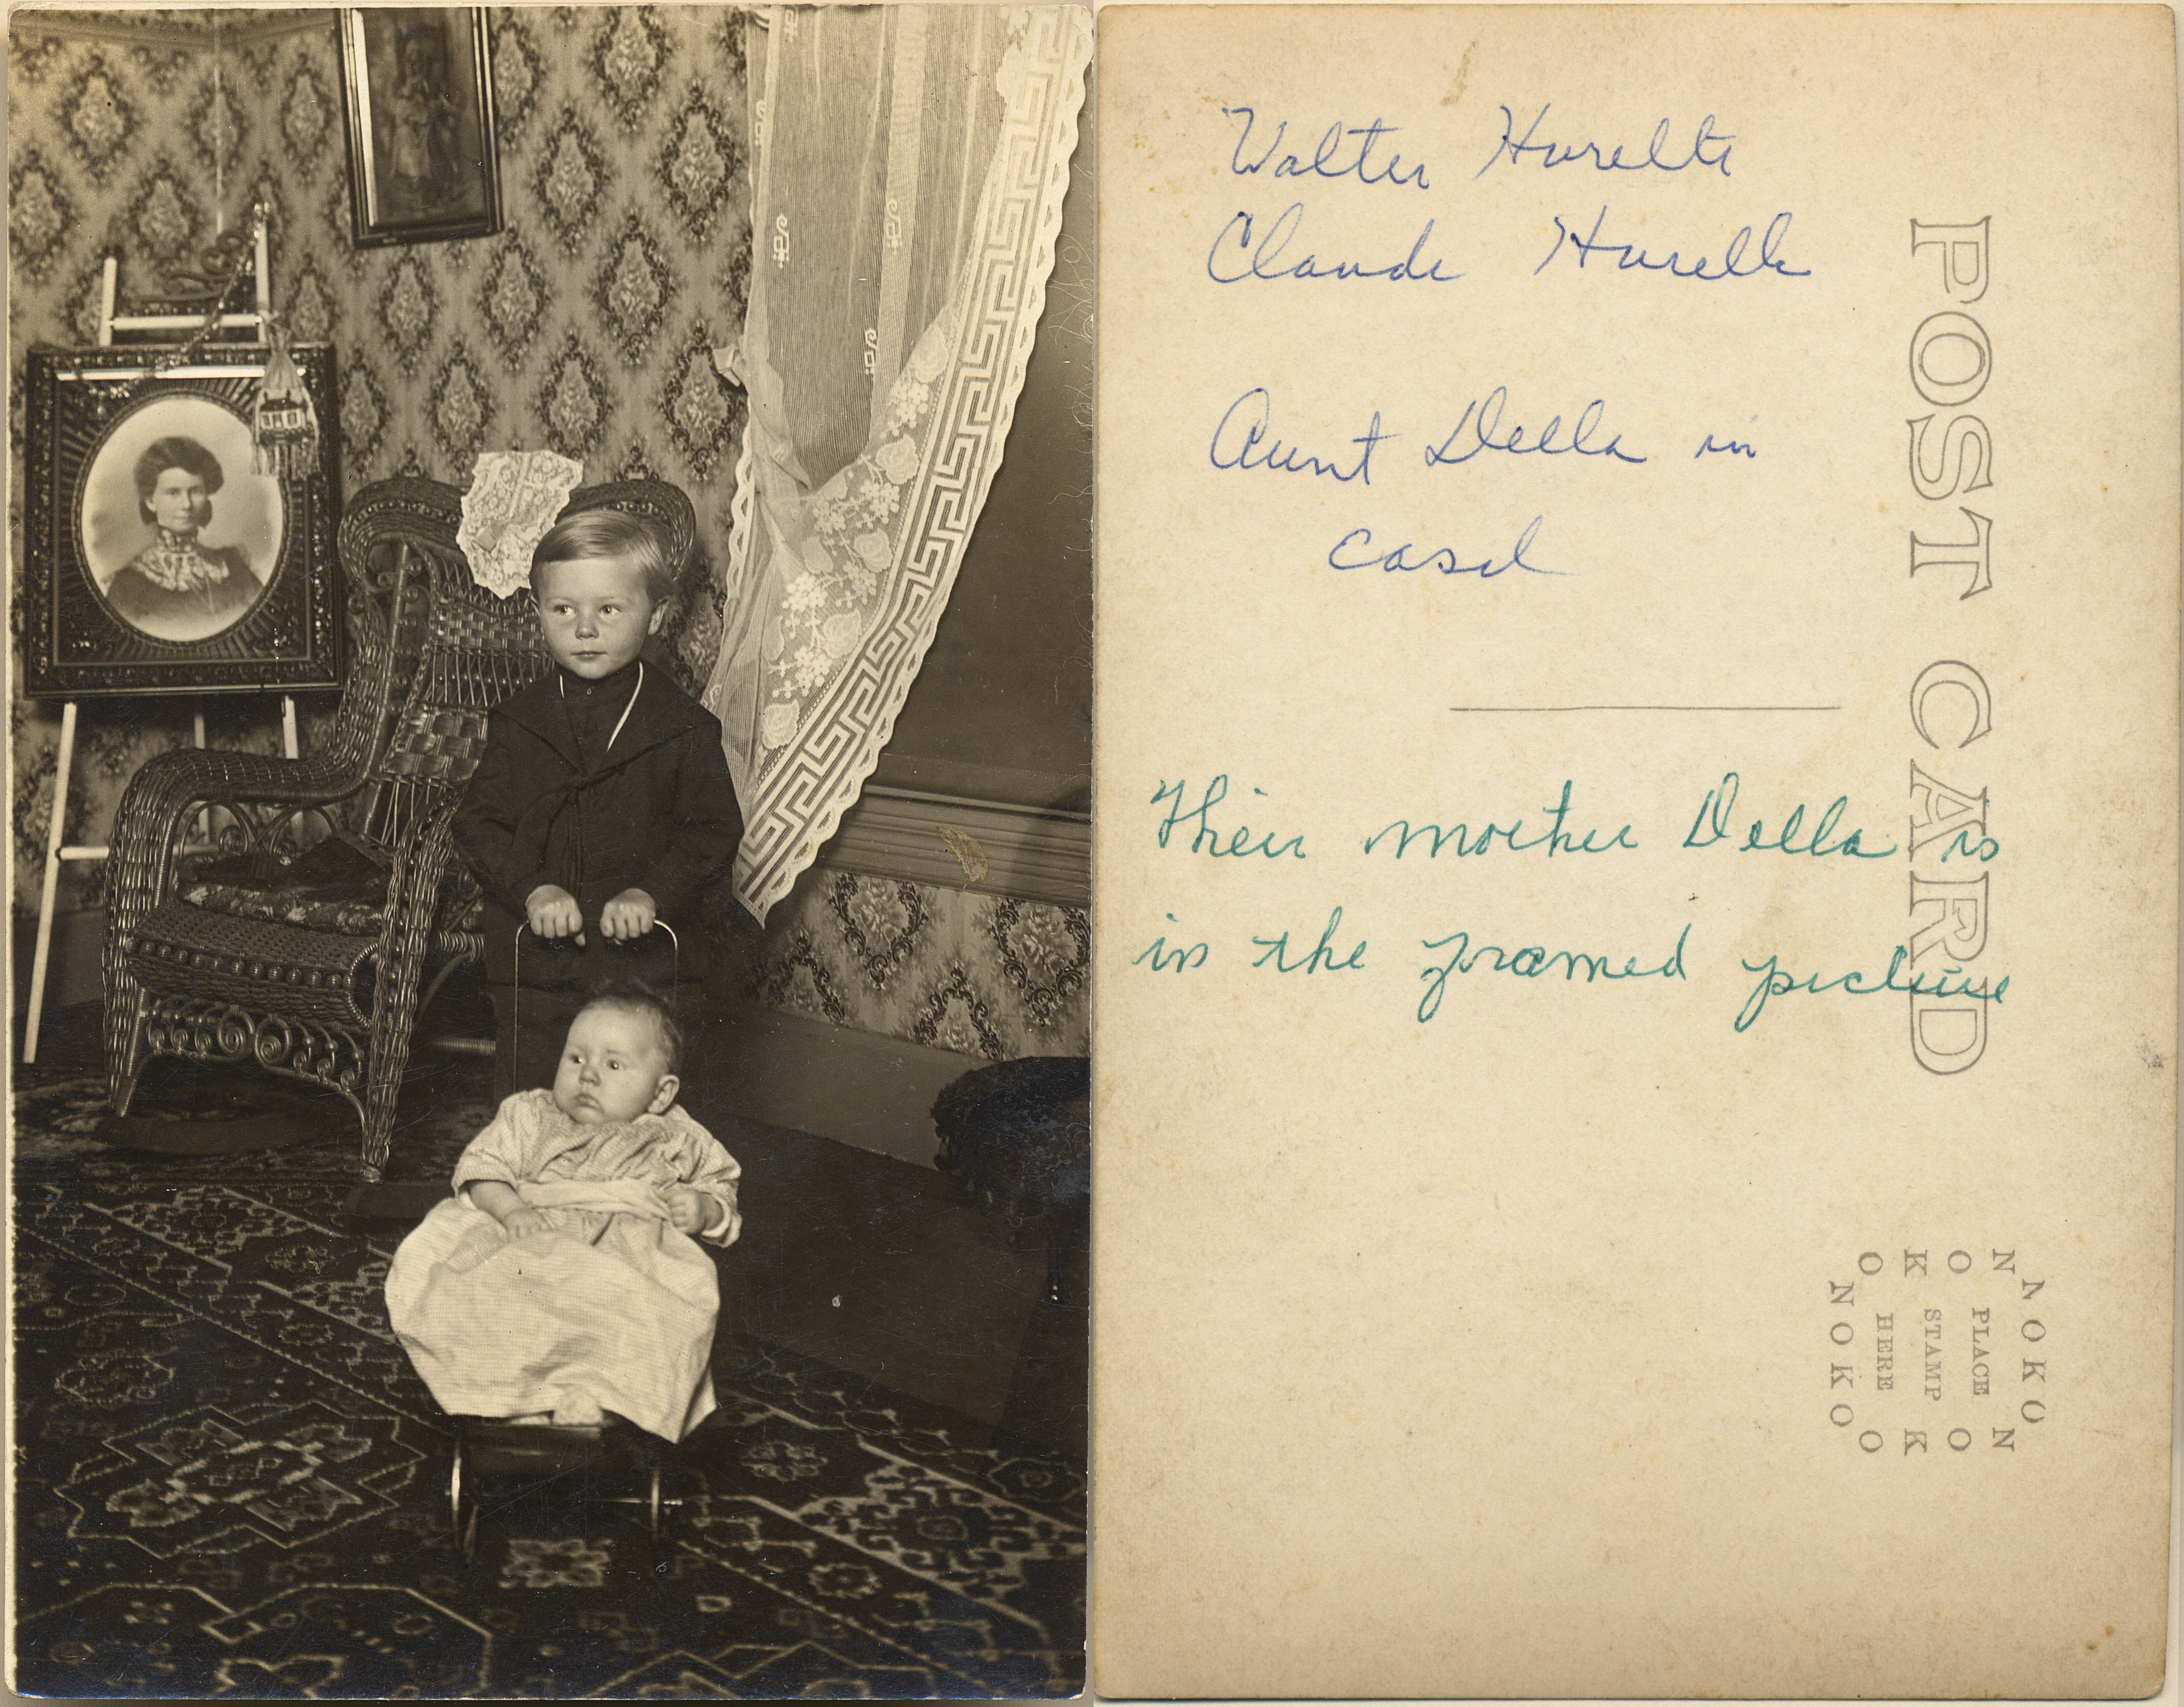 Walter Hurelle
Claude Hurelle
Aunt Della in
casel
Their mother Della is
in the framed picture
POST CARD
NOKO
NOKO
PLACE
STAMP
HERE
NOKO
NOKO